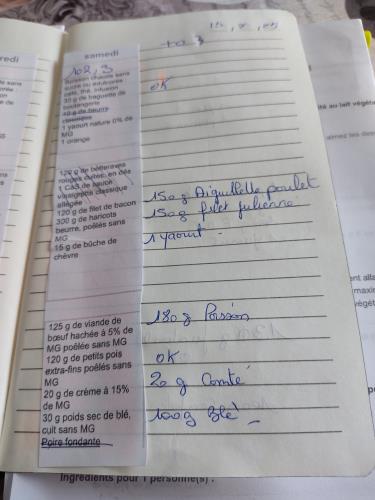 samedi
102,3
Boisson chaude sans
sucre ou édulcorée :
café, thé, infusion
30 g de baguette de
boulangerie
10 g de beurre
classique
1 yaourt nature 0% de
MG
1 orange
OK
120 g de betteraves
rouges cuites, en dés
1 CàS de sauce
vinaigrette classique
allégée
120 g de filet de bacon
300 g de haricots
beurre, poêlés sans
MG
15 g de bûche de
chèvre
150g Aiguillette poulet
150g filet julienne
1 yaourt
125 g de viande de
bœuf hachée à 5% de
MG poêlée sans MG
120 g de petits pois
extra-fins poêlés sans
MG
20 g de crème à 15%
de MG
30 g poids sec de blé,
cuit sans MG
Poire fondante
180g Poisson
OK
20 g Comté
100g Blé
Ingrédients pour 1 personne(s) :